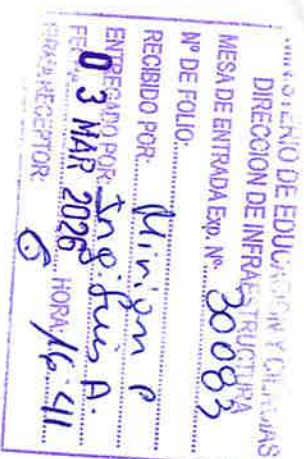 MINISTERIO DE EDUCACIÓN Y CIENCIAS
DIRECCION DE INFRAESTRUCTURA
MESA DE ENTRADA Exp. Nº 30083
Nº DE FOLIO:
RECIBIDO POR: Mirian P
ENTREGADO POR: Ing. Luis A.
03 MAR 2026 HORA: 16:41
FIRMA RECEPTOR: